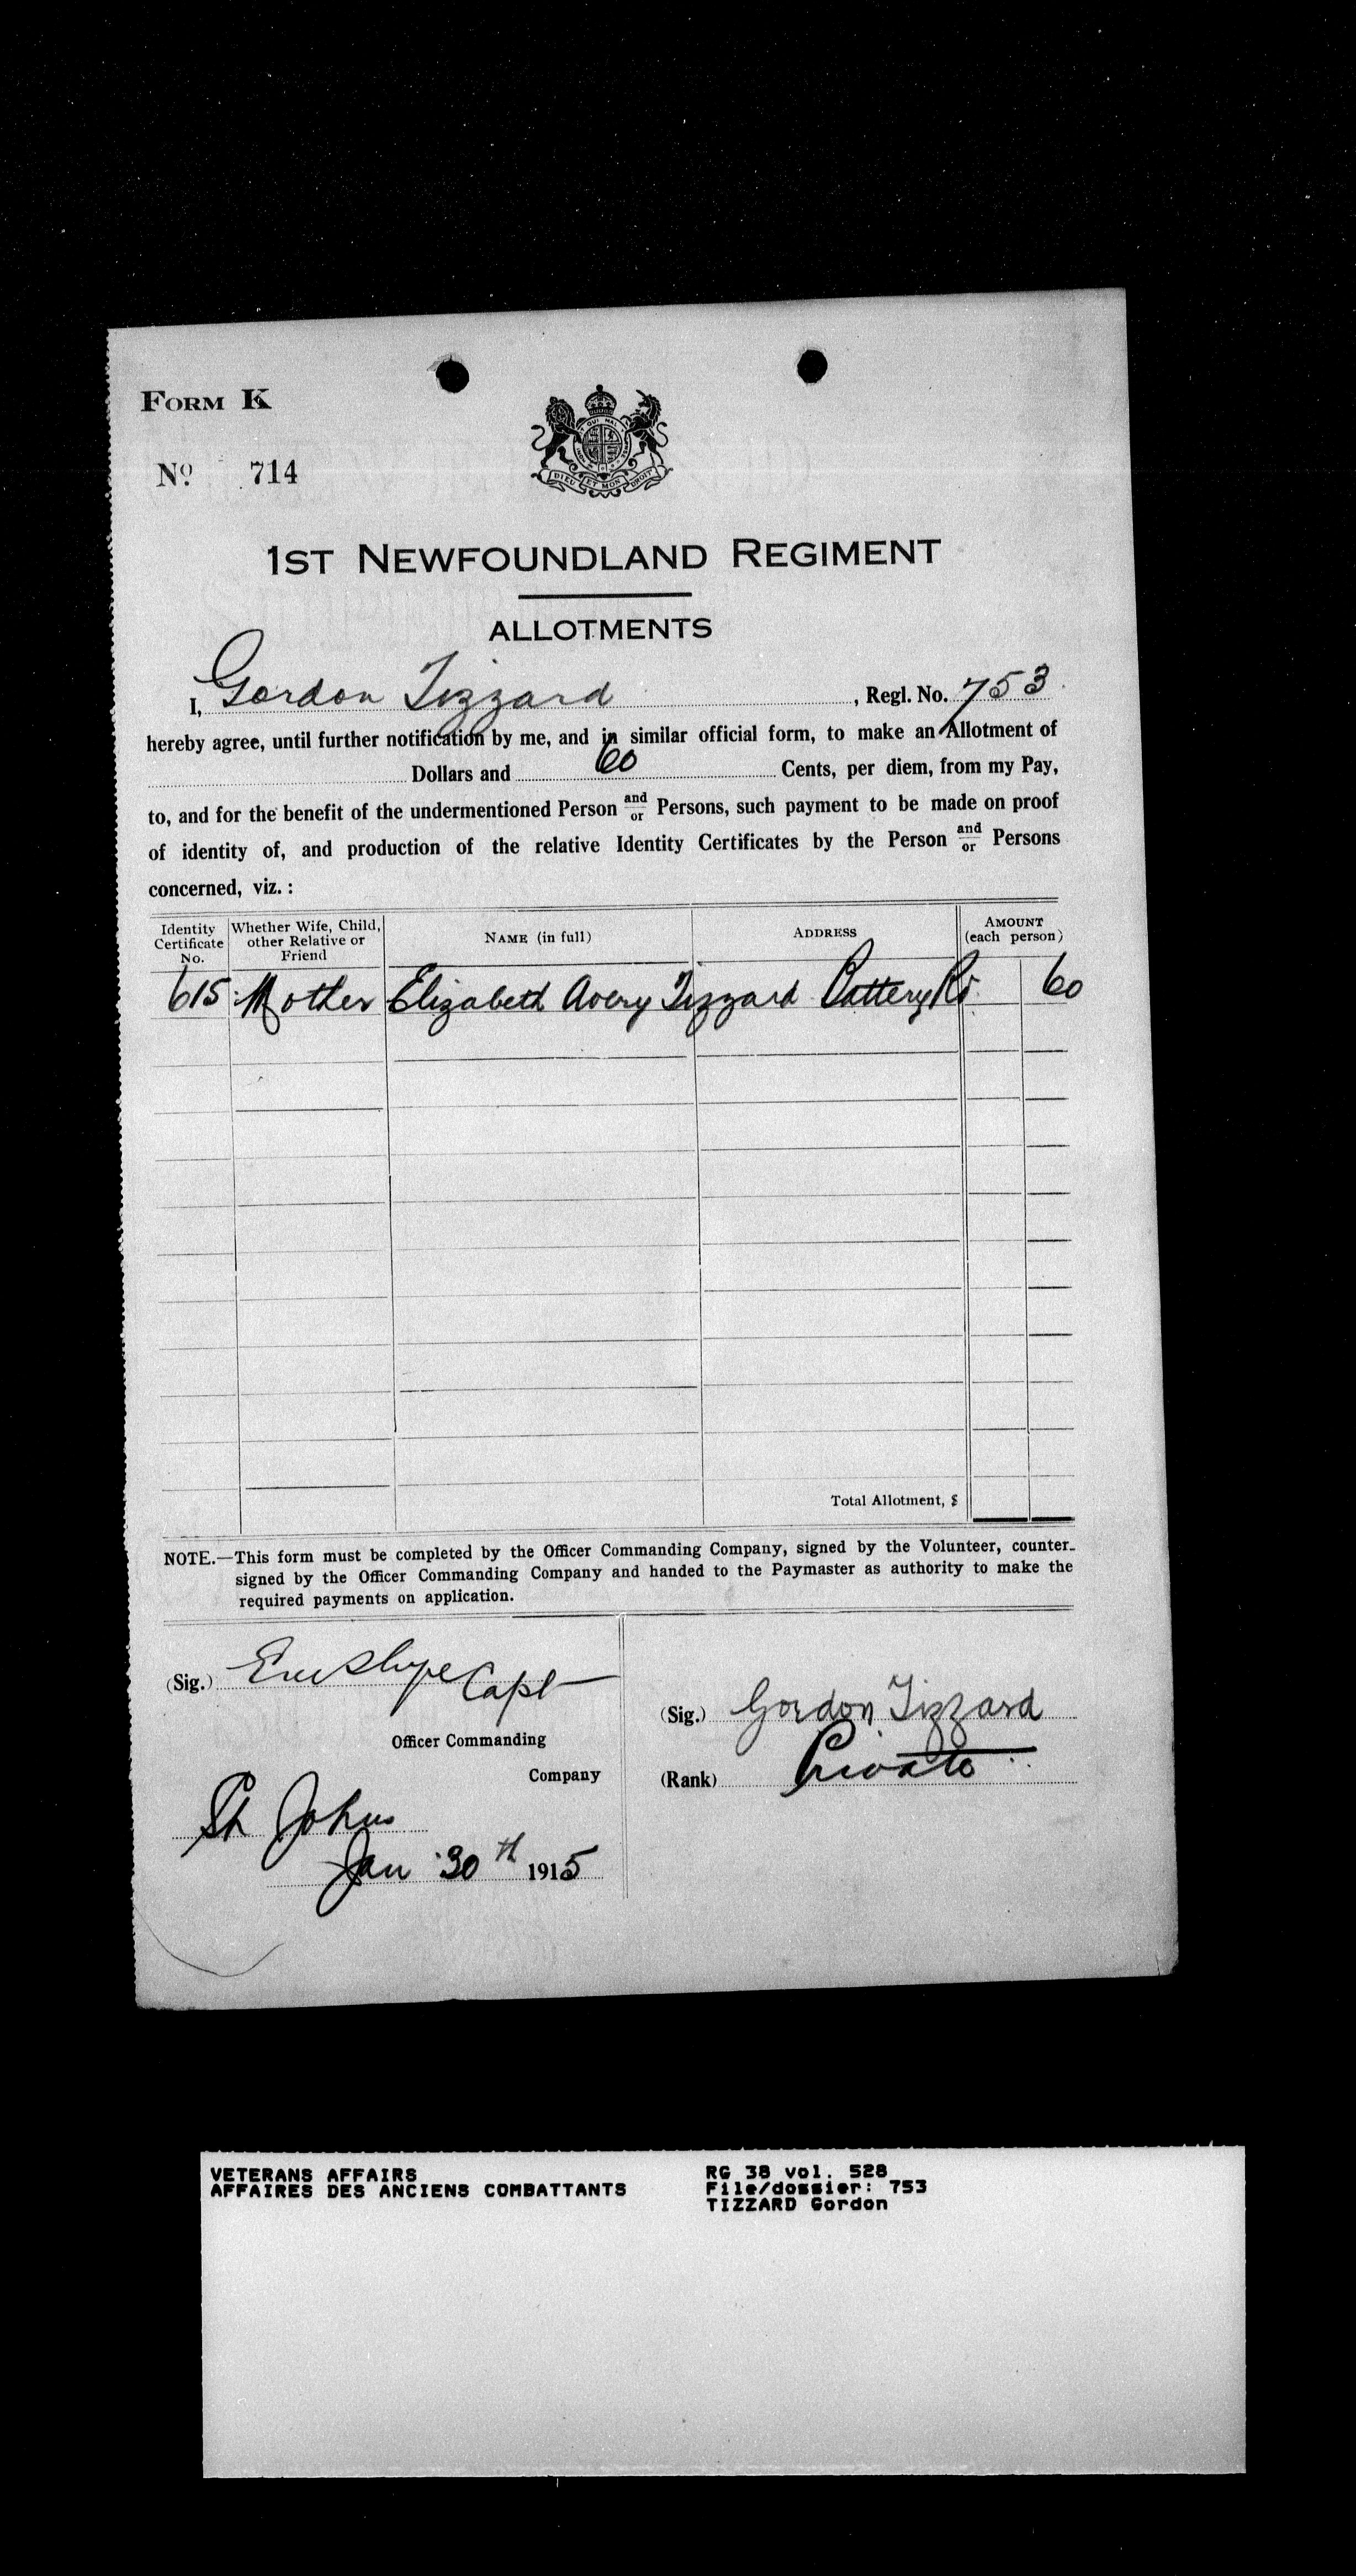 FORM K
No. 714
DIEU ET MON DROIT
1ST NEWFOUNDLAND REGIMENT
ALLOTMENTS
I, Gordon Tizzard, Regl. No. 753
hereby agree, until further notification by me, and in similar official form, to make an Allotment of
Dollars and 60 Cents, per diem, from my Pay,
to, and for the benefit of the undermentioned Person and/or Persons, such payment to be made on proof
of identity of, and production of the relative Identity Certificates by the Person and/or Persons
concerned, viz.:
Identity Certificate No. Whether Wife, Child, other Relative or Friend NAME (in full) ADDRESS AMOUNT (each person)
615 Mother Elizabeth Avery Tizzard Battery Rd 60
Total Allotment, $
NOTE.—This form must be completed by the Officer Commanding Company, signed by the Volunteer, counter-
signed by the Officer Commanding Company and handed to the Paymaster as authority to make the
required payments on application.
(Sig.) Capt
Officer Commanding
Company
(Sig.) Gordon Tizzard
(Rank) Private
St Johns
Jan 30th 1915
VETERANS AFFAIRS
AFFAIRES DES ANCIENS COMBATTANTS
RG 38 vol. 528
File/dossier: 753
TIZZARD Gordon